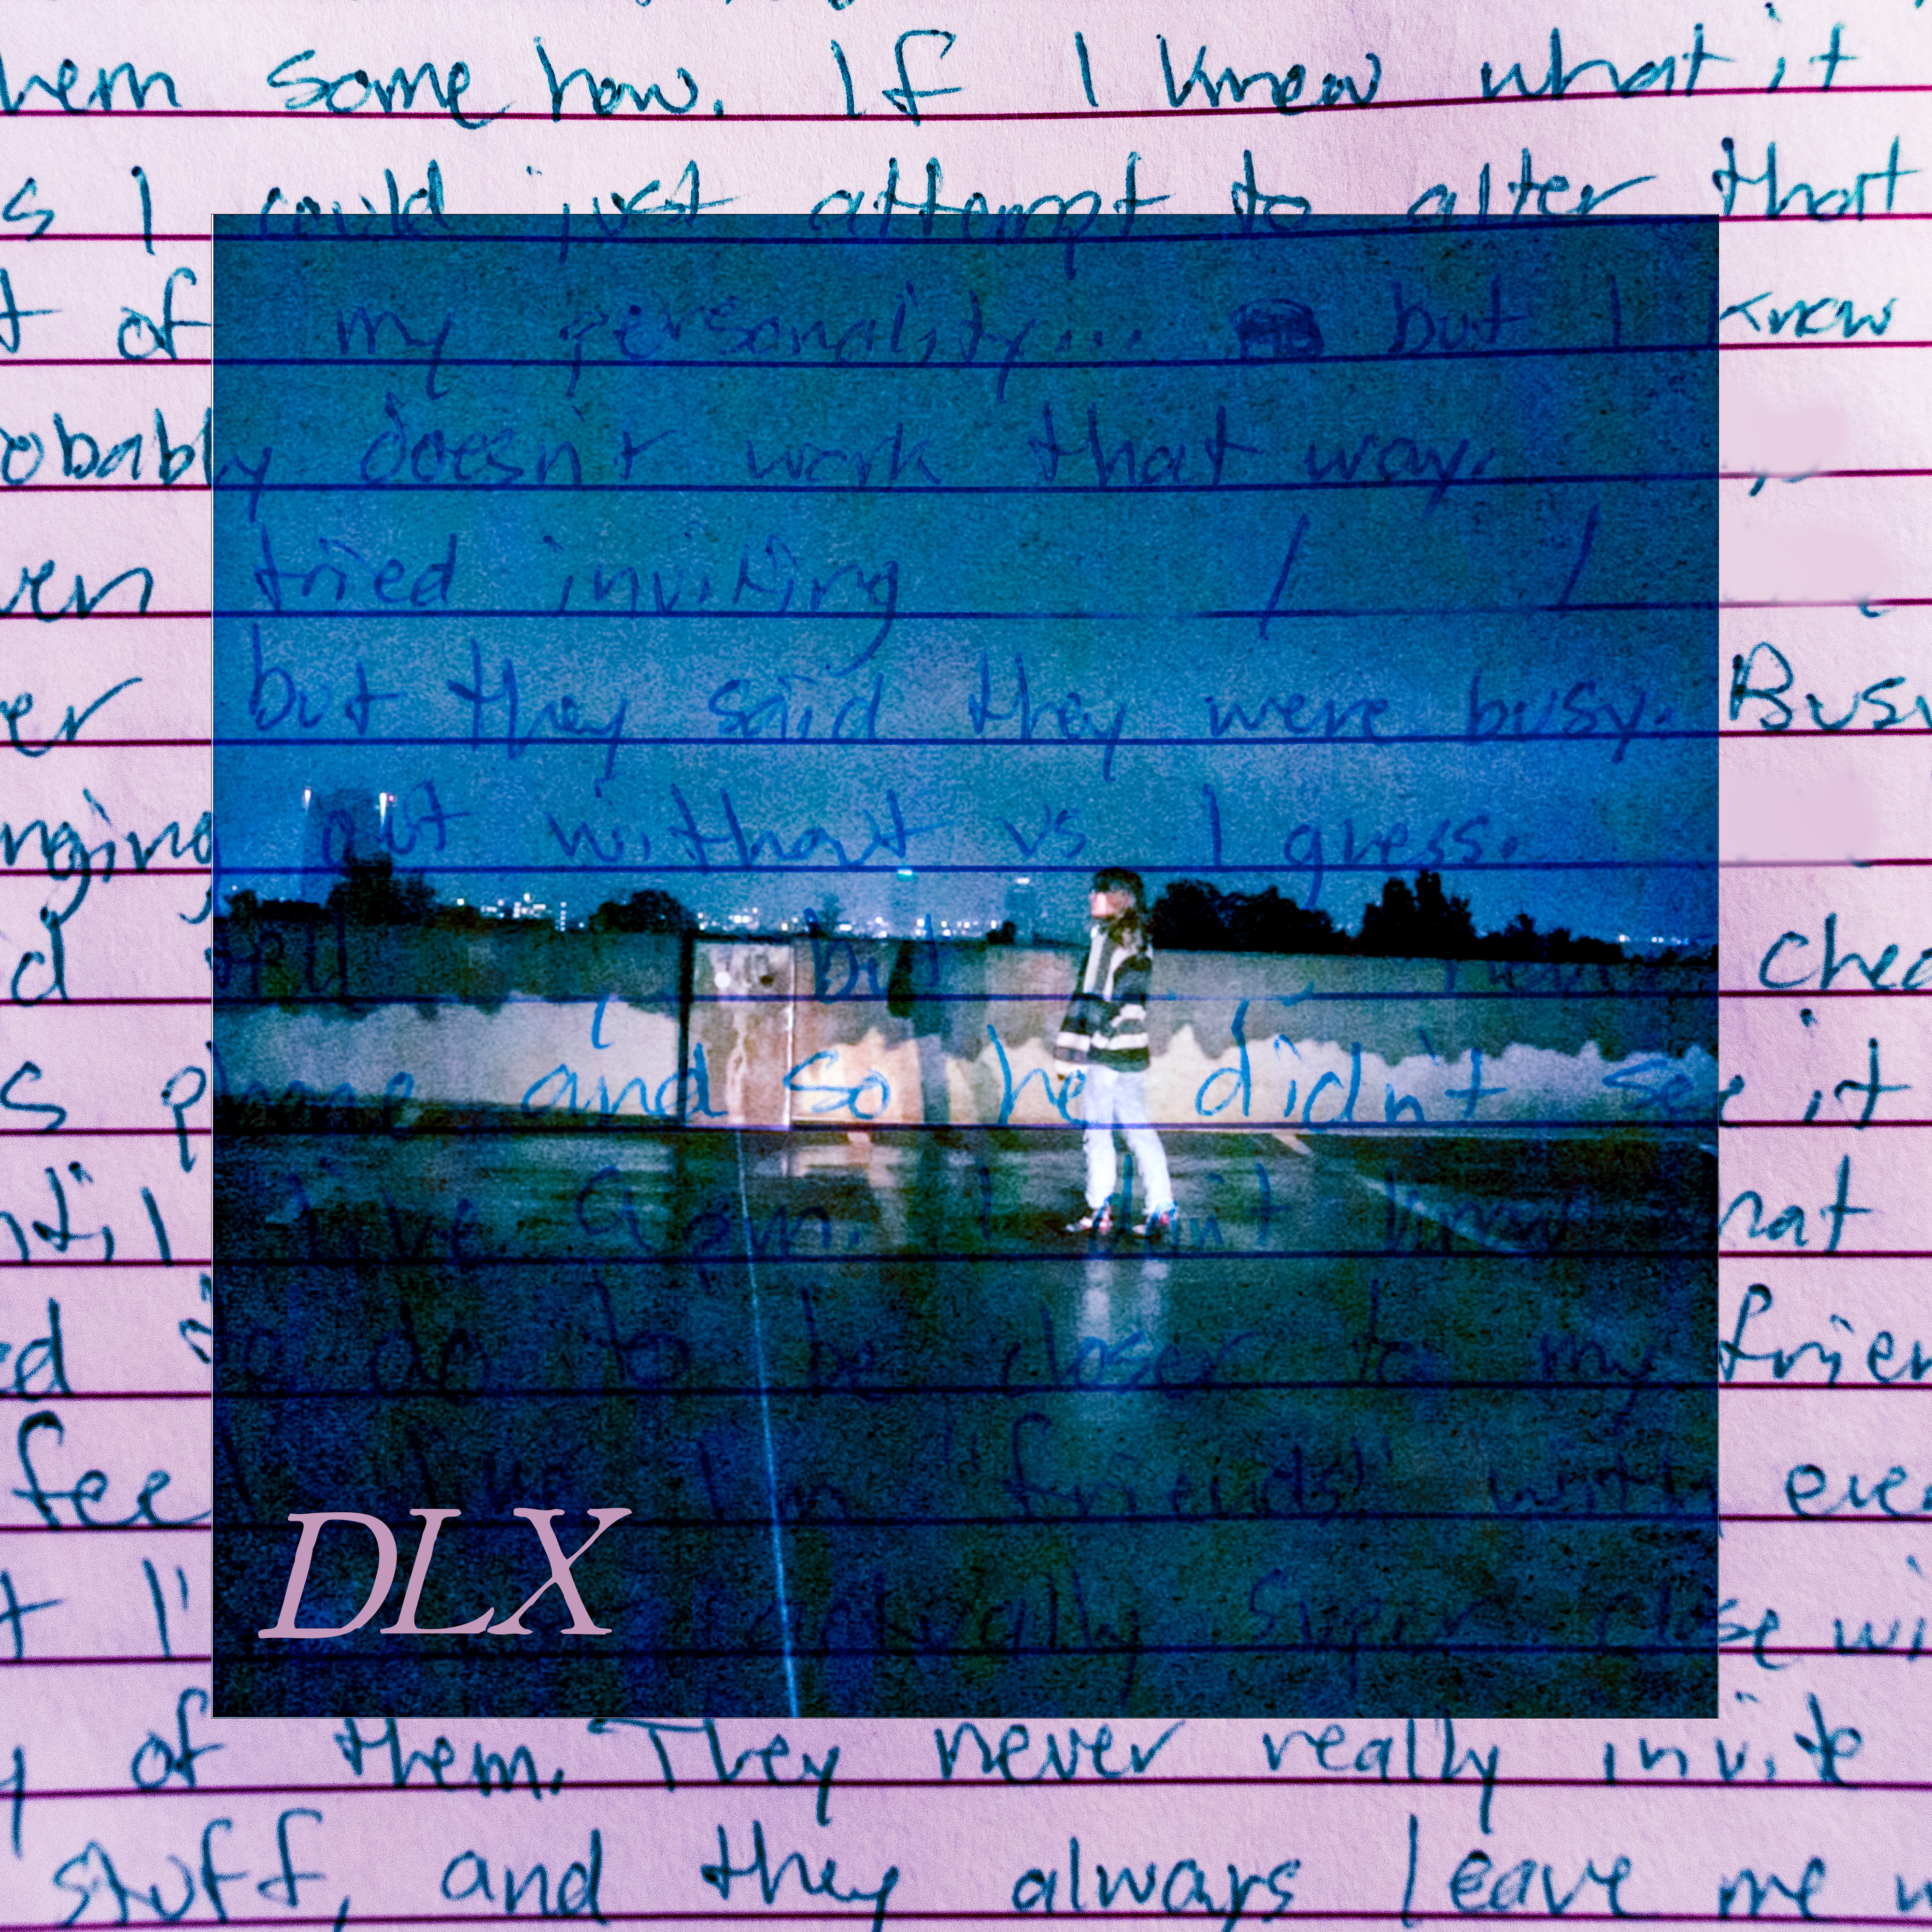 hem some how. If I knew what it
s I could just attempt to alter that
t of my personality... but I know
obably doesn't work that way.
ven tried inviting / /
er but they said they were busy. Busy
nging out without us I guess.
d but chec
s phone and so he didn't see it
ntil five a.m. I don't know what
ed do to be closer to my frien
feel like I'm "friends" with eve
t I' actually super close wi
y of them. They never really invite
stuff, and they always leave me w
DLX